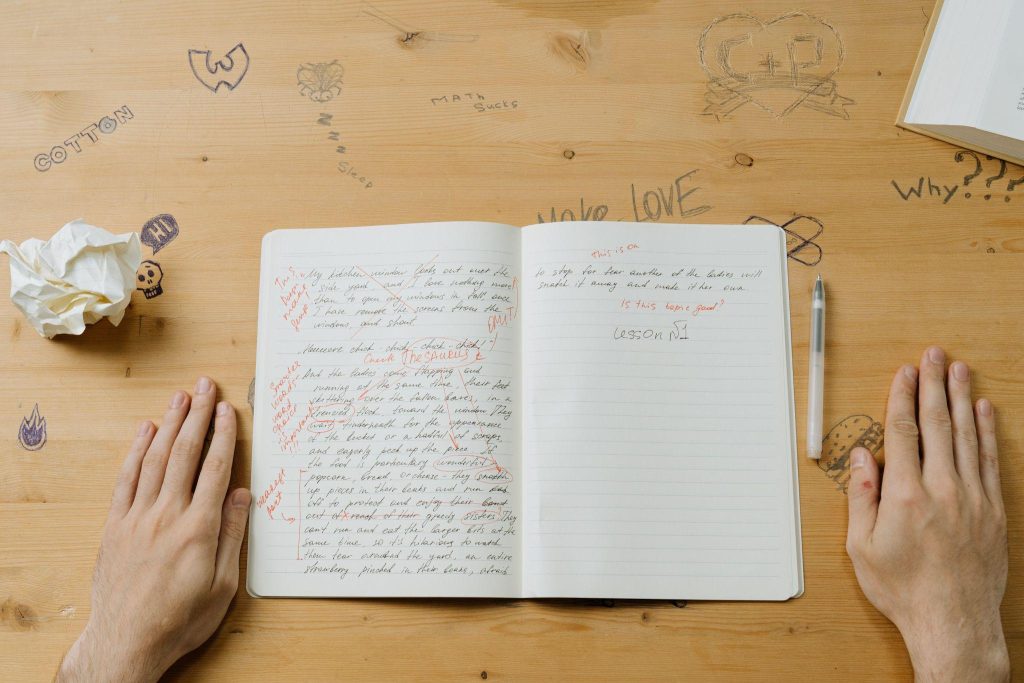 W
COTTON
ZZZ
Sleep
MATH
Sucks
C+P
Why???
HI
MAKE LOVE
My kitchen window looks out over the
side yard and I love nothing more
than to open my windows in fall once
I have remove the screens from the
windows, and shout
OMIT!
chick - chick - chick - chick!
Check THESAURUS
And the ladies come flapping and
running at the same time, their feet
skittering over the fallen leaves, in a
frenzied flock, toward the window. They
wait underneath for the appearance
of the bucket or a handful of scraps,
and eagerly peck up the piece. If
the food is particulary wonderful
popcorn, bread, or cheese - they snatch
up pieces in their beaks and run
off to protect and enjoy their
out of reach of their greedy sisters. They
cant run and eat the larger bits at the
same time, so it's hilarious to watch
them tear around the yard, an entire
strawberry pinched in their beaks, afraid
weakest
part
This is on
to stop for fear another of the ladies will
snatch it away and make it her own.
Is this topic good?
Lesson №1